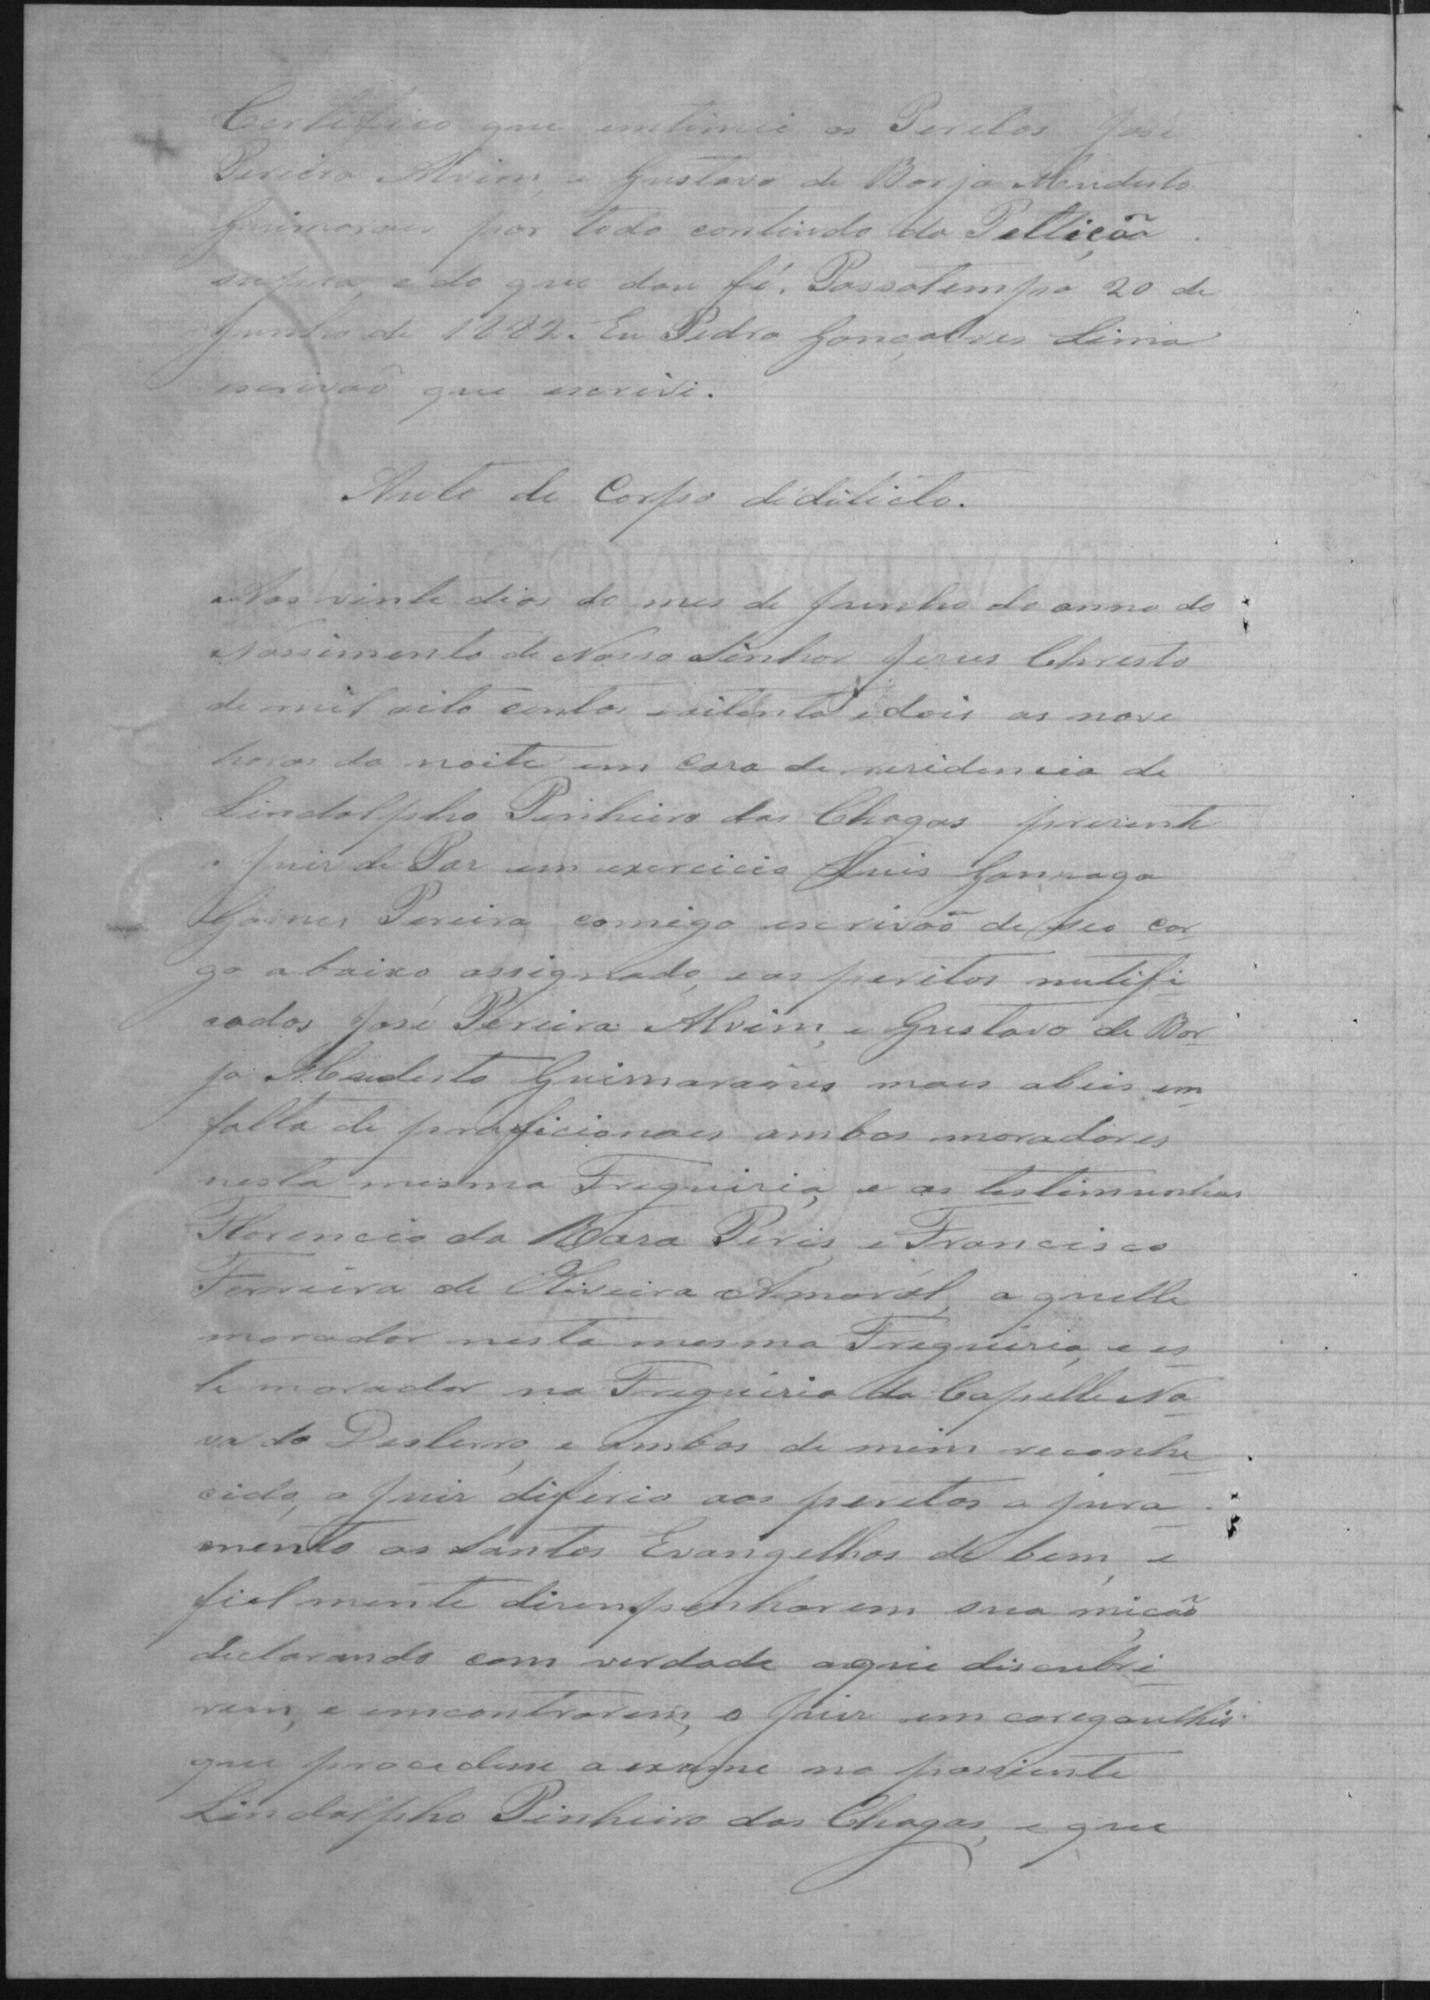 Certifico que entimei os Peritos José
Pereira Alvim, e Gustavo de Borja Mendesto
Guimaraes por todo contiudo da Pettição
supra, e do que dou fé. Passatempo 20 de
Junho de 1882. Eu Pedro Gonçalves Lima
escrivaõ que escrivi.
Auto de Corpo didilicto.
Aos vinte dias do mes de Junho do anno do
Nassimento de Nosso Senhor Jesus Christo
de mil oito centos e oitenta e dois as nove
horas da noite em casa de residencia de
Lindolpho Pinheiro das Chagas presente
o Juis de Pas em exercicio Luis Gonzaga
Gomes Pereira comigo escrivaõ de seo car-
go abaixo assignado, e os peritos nutifi
cados José Pereira Alvim, e Gustavo de Bor-
ja Mendesto Guimaraões mais abeis em
falta de proficionaes ambos moradores
nesta mesma Freguizia, e as testimunhas
Florencio da Peres, e Francisco
Ferreira de Oliveira Amorál, a quelle
morador nesta mesma Freguizia, e es-
te morador na Freguizia da Capella No-
va do Desterro, e ambos de mim reconhe-
cido, o Juiz diferio aos peretos o jura-
mento os Santos Evangelhos de bem, e
fielmente disempenharem sua miçaõ
declarando com verdade oque discubri-
rem, e emcontrarem, o Juiz em
que procedesse a exame no passiente
Lindolpho Pinheiro das Chagas, e que